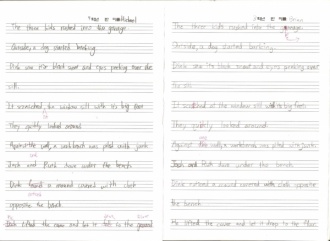 Michael
The three kids rushed into the garage.
Outside, a dog started barking.
Dink saw its black nose and eyes peeking over the
sill.
It scratched the window sill with its big paw
They quickly looked around.
Against the wall, a workbench was piled with junk
Jack and Ruth dove under the bench
Dink found a mound covered with cloth
opposite the bench.
lifted the and let it to the ground
The three kids rushed into the garage.
Outside, a dog started barking.
Dink saw its black nose and eyes peeking over
the sill.
It scratched at the window sill with its big feet.
They quickly looked around.
Against the wall, a workbench was piled with junk.
Josh and Ruth dove under the bench.
Dink noticed a mound covered with cloth opposite
the bench.
He lifted the and let it drop to the floor.